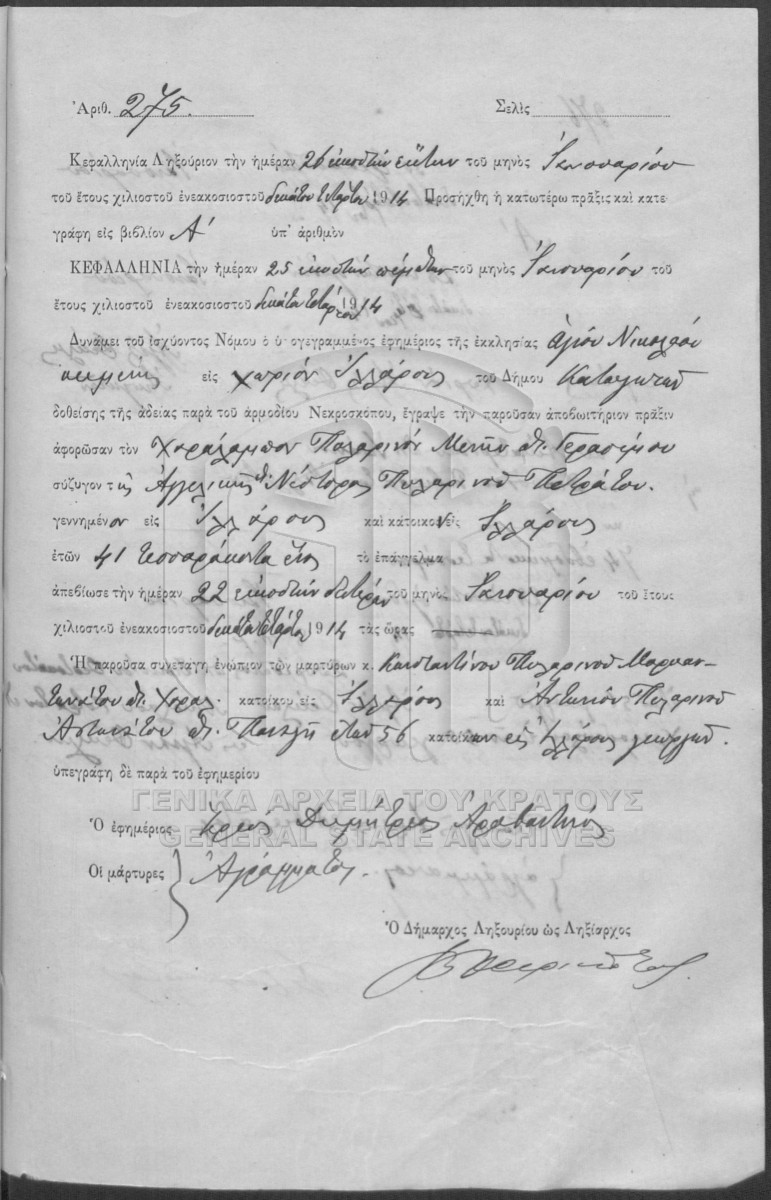 Ἀριθ. 275. Σελὶς
Κεφαλληνία Ληξούριον τὴν ἡμέραν 26 εἰκοστὴν ἕκτην τοῦ μηνὸς Ἰανουαρίου
τοῦ ἔτους χιλιοστοῦ ἐνεακοσιοστοῦ δεκάτου τετάρτου 1914 Προσήχθη ἡ κατωτέρω πρᾶξις καὶ κατε-
γράφη εἰς βιβλίον Α' ὑπ' ἀριθμὸν
ΚΕΦΑΛΛΗΝΙΑ τὴν ἡμέραν 25 εἰκοστὴν πέμπτην τοῦ μηνὸς Ἰανουαρίου τοῦ
ἔτους χιλιοστοῦ ἐνεακοσιοστοῦ δεκάτου τετάρτου 1914
Δυνάμει τοῦ ἰσχύοντος Νόμου ὁ ὑπογεγραμμένος ἐφημέριος τῆς ἐκκλησίας Ἁγίου Νικολάου
εἰς χωρίον Ἰλλάρους τοῦ Δήμου
δοθείσης τῆς ἀδείας παρὰ τοῦ ἁρμοδίου Νεκροσκόπου, ἔγραψε τὴν παροῦσαν ἀποβιωτήριον πρᾶξιν
ἀφορῶσαν τὸν Χαράλαμπον Πυλαρινὸν Γερασίμου
σύζυγον τῆς Ἀγγελικῆς Νέστορος Πυλαρινοῦ Πετράτου.
γεννημένον εἰς Ἰλλάρους καὶ κάτοικον εἰς Ἰλλάρους
ἐτῶν 41 τεσσαράκοντα ἑνὸς τὸ ἐπάγγελμα
ἀπεβίωσε τὴν ἡμέραν 22 εἰκοστὴν δευτέραν τοῦ μηνὸς Ἰανουαρίου τοῦ ἔτους
χιλιοστοῦ ἐνεακοσιοστοῦ δεκάτου τετάρτου 1914 τὰς ὥρας
Ἡ παροῦσα συνετάγη ἐνώπιον τῶν μαρτύρων κ. Κωνσταντίνου Πυλαρινοῦ
Χαραλ. κατοίκου εἰς Ἰλλάρους καὶ Ἀντωνίου Πυλαρινοῦ
Παναγῆ ἐτῶν 56 κατοίκων εἰς Ἰλλάρους γεωργῶν.
ὑπεγράφη δὲ παρὰ τοῦ ἐφημερίου
ΓΕΝΙΚΑ ΑΡΧΕΙΑ ΤΟΥ ΚΡΑΤΟΥΣ
Ὁ ἐφημέριος Ἱερεὺς Δημήτριος Ἀραβαντινός
GENERAL STATE ARCHIVES
Οἱ μάρτυρες Ἀγράμματοι.
Ὁ Δήμαρχος Ληξουρίου ὡς Ληξίαρχος